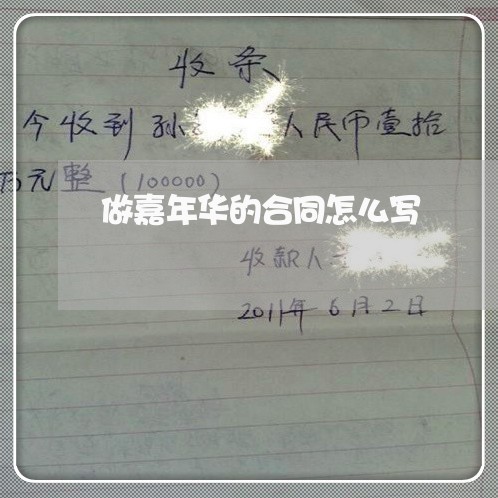 收条
今收到孙 人民币壹拾
万元整(100000)
做嘉年华的合同怎么写
收款人
2011年6月2日